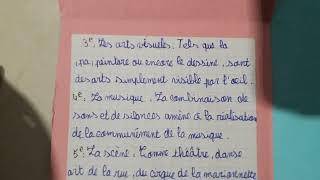 3e. Les arts visuels. Tels que la
,pa, peinture ou encore le dessine, sont
des arts simplement visible par l'œil.
4e. La musique. La combinaison de
sons et de silences amène à la réalisation
de la communément de la musique.
5e. La scène. Comme théâtre, danse
art de la rue, du cirque de la marionnette